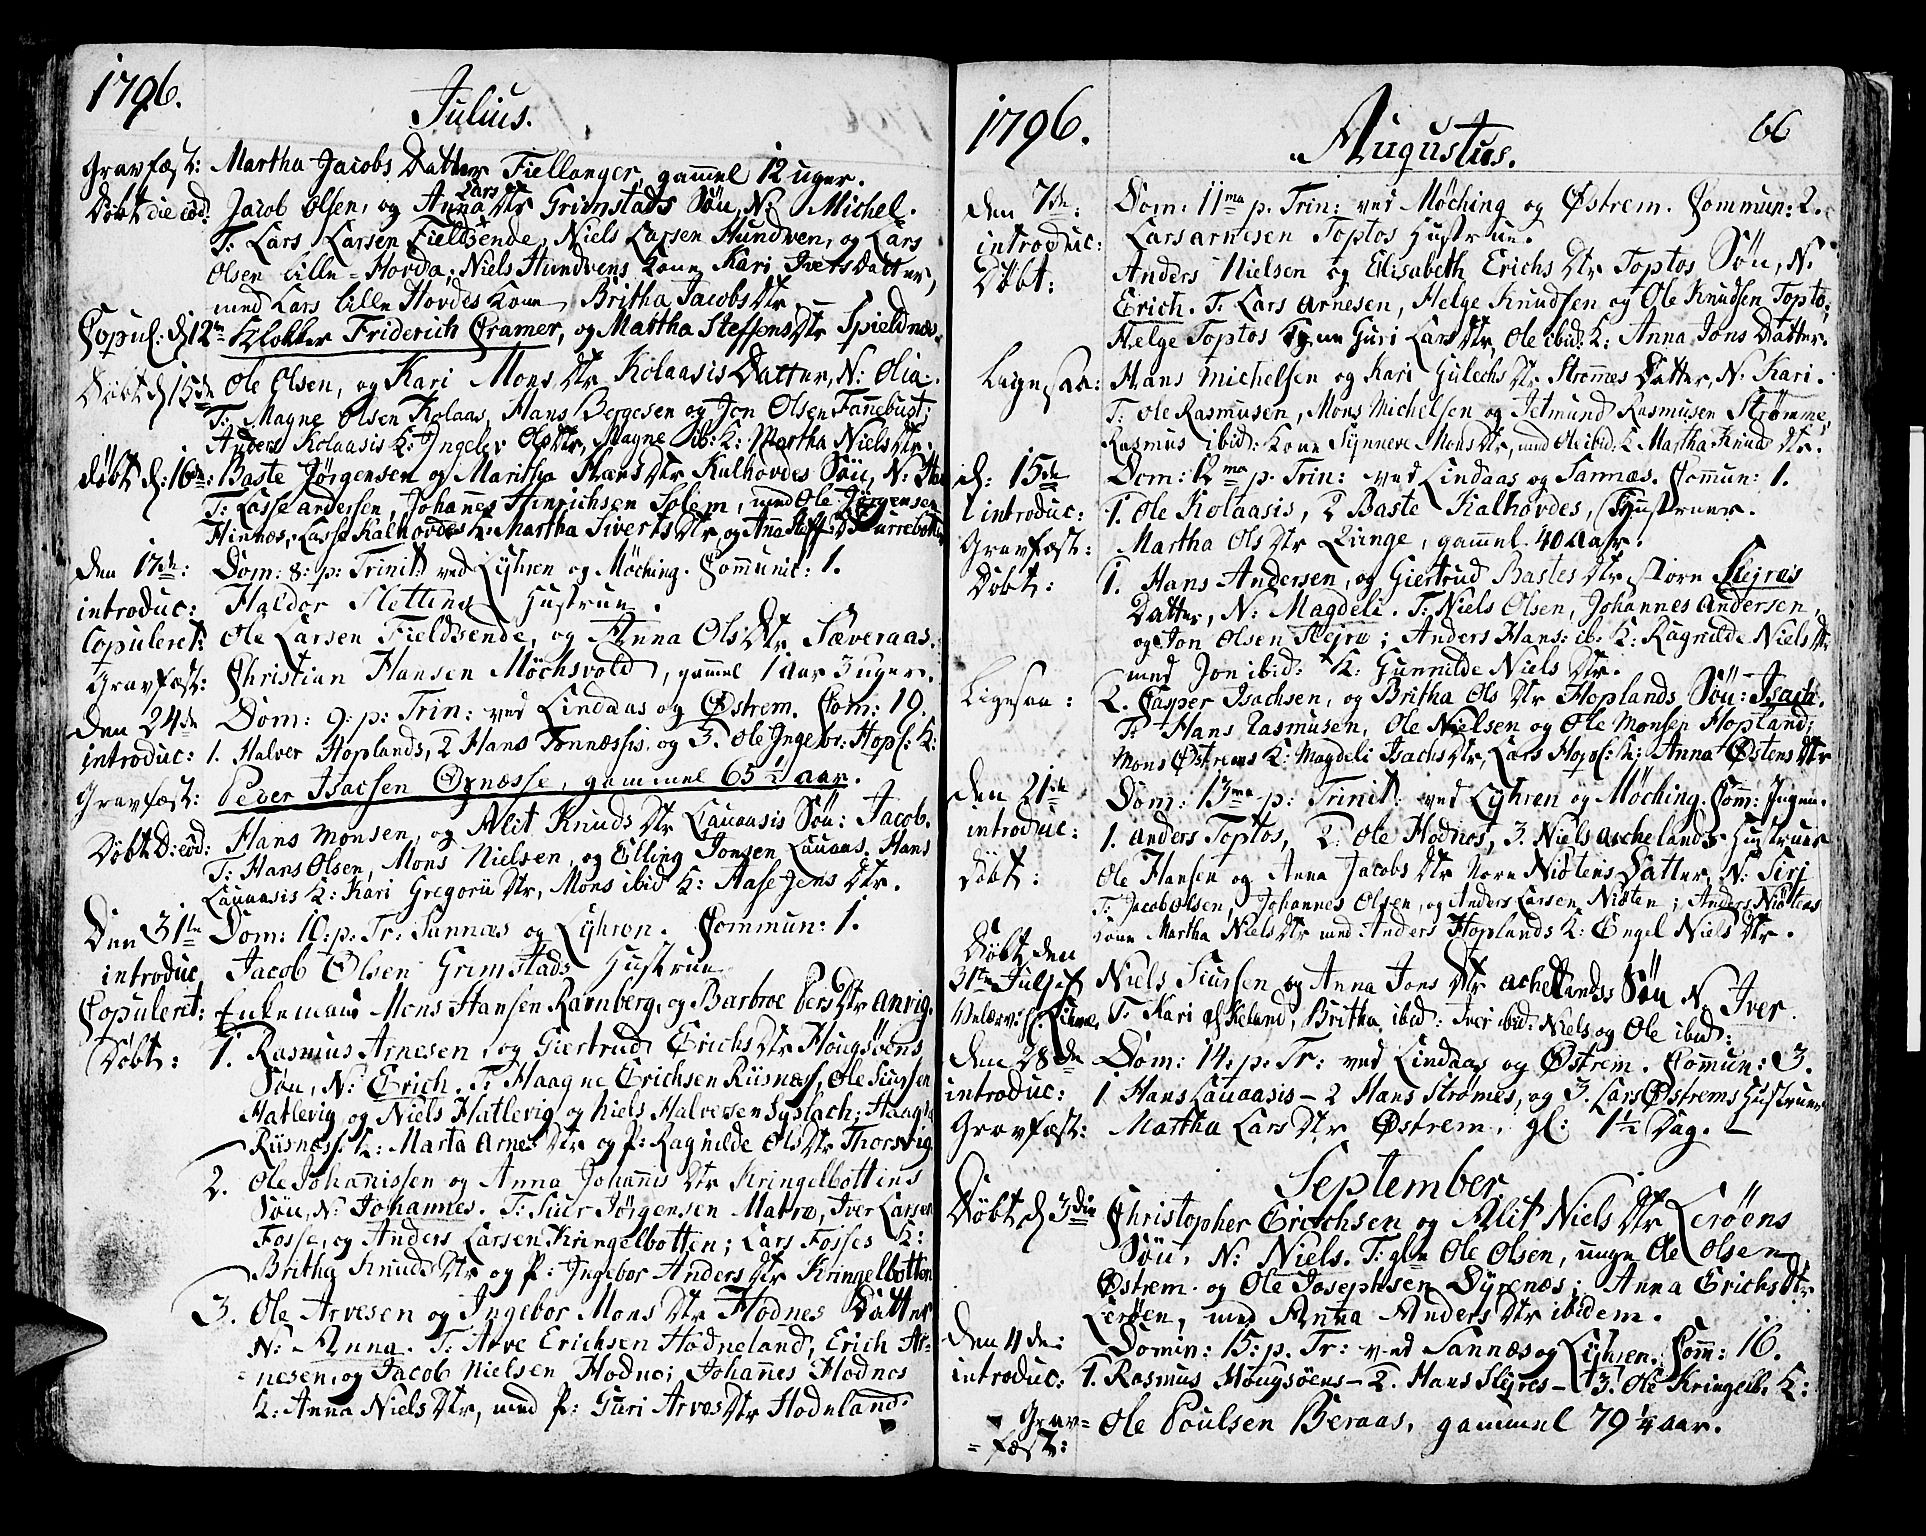 1796.
Julius.
Gravfæst: Martha Jacobs Datter Fiellanger, gamel 12 uger.
Døbt die eod: Jacob Olsen, og Anna Lars Dtr Grimstads Søn, N: Michel.
T: Lars Larsen Fieldsende, Niels Larsen Hundven, og Lars
Olsen Lille-Horda; Niels Hundvens Kone Kari Ivers Datter,
med Lars Lille Hordes Kone Britha Jacobs Dtr.
Copul: d 12te Klokker Friderich Cramer, og Martha Steffens Dtr Spieldnæs.
Døbt d 15de Ole Olsen, og Kari Mons Dtr Kolaasis Datter, N: Olia.
T: Magne Olsen Kolaas, Hans Bergesen og Jon Olsen Fannebust;
Anders Kolaasis K: Ingeler Ols Dtr, Magne ib: K: Martha Niels Dtr.
døbt d: 16de: Baste Jørgensen og Maritha Hans Dtr Kalhovdes Søn, N:
T: Lasse Andersen, Johannes Hinrichsen Solem, med Ole Jørgensen
Hinnes, Lasse Kalhovdes K: Martha Siverts Dtr, og Anna Steff: D
Den 17de: Dom: 8: p: Trinit: ved Lyhren og Møching. Communic: 1.
introduc: Haldor Slettens Hustrue.
Copuleret: Ole Larsen Fieldsende, og Anna Ols Dtr Sæveraas.
Gravfæst: Christian Hansen Möchsvold, gamel 1 aar 3 uger.
Den 24de Dom: 9: p: Trin: ved Lindaas og Østrem. Com: 19.
introduc: 1. Halver Hoplands, 2 Hans Tonnæssis, og 3. Ole Ingebr: Hopl: K:
Gravfæst: Peder Isacsen Øxnæsse, gammel 65 1/2 aar.
Døbt D: eod: Hans Monsen, og Alit Knuds Dtr Lauaasis Søn: Jacob.
T: Hans Olsen, Mons Nielsen, og Elling Jonsen Lauaas. Hans
Lauaasis K: Kari Gregorii Dtr, Mons ibid K: Aase Jens Dtr.
Den 31te Dom: 10: p: Tr: Sannæs og Lyhren. Commun: 1.
introduc Jacob Olsen Grimstads Hustrue
Copuleret: Enkemand Mons Hansen Ramberg, og Barbroe Pers Dtr
Døbt: 1. Rasmus Arnesen, og Giertrud Erichs Dtr Hougsøens
Søn, N: Erich. T: Haagne Erichsen Riisnæs, Ole Siursen
Hatlevig og Niels Hatlevig og Niels Halversen Syslach; Haagn
Riisnæss: K: Marta Arnes Dtr og P: Ragnilde Ols Dtr Thorsvig
2. Ole Johannissen og Anna Johannis Dtr Kringelbottens
Søn, N: Johannes. T: Siur Jørgensen Matre, Iver Larsen
Fosse, og Anders Larsen Kringelbotten; Lars Fosses K:
Britha Knuds Dtr og P: Ingebor Anders Dtr Kringelbotten
3. Ole Arvesen og Ingebor Mons Dtr Hodnes Datter
N: Anna. T: Arve Erichsen Hodneland, Erich Ar-
nesen, og Jacob Nielsen Hodne; Johannes Hodnes
K: Anna Niels Dtr, med P: Guri Arves Dtr Hodneland.
1796.
Augustus.
66
den 7de: Dom: 11ma p. Trin: ved Møching og Østrem. Commun: 2.
introduc: Lars Arnesen Toptos Hustrue.
Døbt: Anders Nielsen og Elisabeth Erichs Dtr Toptos Søn, N:
Erich. T: Lars Arnesen, Helge Knudsen og Ole Knudsen Topto;
Helge Toptos Kone Guri Lars Dtr, Ole ibid: K: Anna Jons Datter.
Ligesaa: Hans Michelsen og Kari Gulechs Dtr Strømes Datter, N: Kari.
T: Ole Rasmusen, Mons Michelsen og Jetmund Rasmusen Strømme,
Rasmus ibid: Kone Synneve Mons Dtr, med Ole ibid: K Martha Knuds Dtr.
d: 15de Dom: 12ma p. Trin: ved Lindaas og Sannæs. Commun: 1.
introduc: 1. Ole Kolaasis, 2 Baste Kalhovdes, Hustruer.
Gravfæst: Martha Ols Dtr Lunge, gammel 40 Aar.
Døbt: 1. Hans Andersen, og Giertrud Bastes Dtr Store Slejres
Datter, N: Magdeli. T: Niels Olsen, Johannes Andersen,
og Jon Olsen Slejre; Anders Hans: ib: K: Ragnilde Niels Dtr
med Jon ibid: K: Gunnilde Niels Dtr.
Ligesaa: 2. Casper Isachsen, og Britha Ols Dtr Hoplands Søn: Isach.
T: Hans Rasmusen, Ole Nielsen og Ole Monsen Hopland;
Mons Østrems K: Magdeli Isachs Dtr, Lars Hopl: K: Anna Østens Dtr
Den 21de Dom: 13ma p: Trinit: ved Lyhren og Møching. Com: Ingen.
introduc: 1. Anders Toptos, 2. Ole Hodnes, 3. Niels Aschelands Hustruer
Døbt: Ole Hansen og Anna Jacobs Dtr Nore Niøtens Datter, N: Siri
T: Jacob Olsen, Johannes Olsen, og Anders Larsen Niøten; Anders Niøtens
Kone Martha Niels Dtr med Anders Hoplands K: Engel Niels Dtr.
Døbt den
31te Julii Niels Siursen og Anna Jons Dtr Achellands Søn N. Iver.
T: Kari Askeland, Britha ibid: Iver ibid: Niels og Ole ibid:
den 28de Dom: 14: p: Tr: ved Lindaas og Østrem. Commun: 3.
introduc: 1 Hans Lauaasis - 2 Hans Strømes, og 3. Lars Østrems Hustruer
Gravfæst: Martha Lars Dtr Østrem, gl: 1 1/2 Dag.
September
Døbt d 3die Christopher Erichsen og Alit Niels Dtr Lerøens
Søn, N: Niels. T: gle Ole Olsen, unge Ole Olsen
Østrem og Ole Josephsen Dyrenæs; Anna Erichs Dtr
Lerøen, med Anna Anders Dtr ibidem.
Den 4de: Domin: 15: p. Tr: ved Sannæs og Lyhren. Com: 16.
introduc: 1. Rasmus Hougsøens - 2. Hans Slejres - 3. Ole Kringelb: K:
Grav=
=fæst: Ole Poulsen Beraas, gammel 79 1/4 aar.